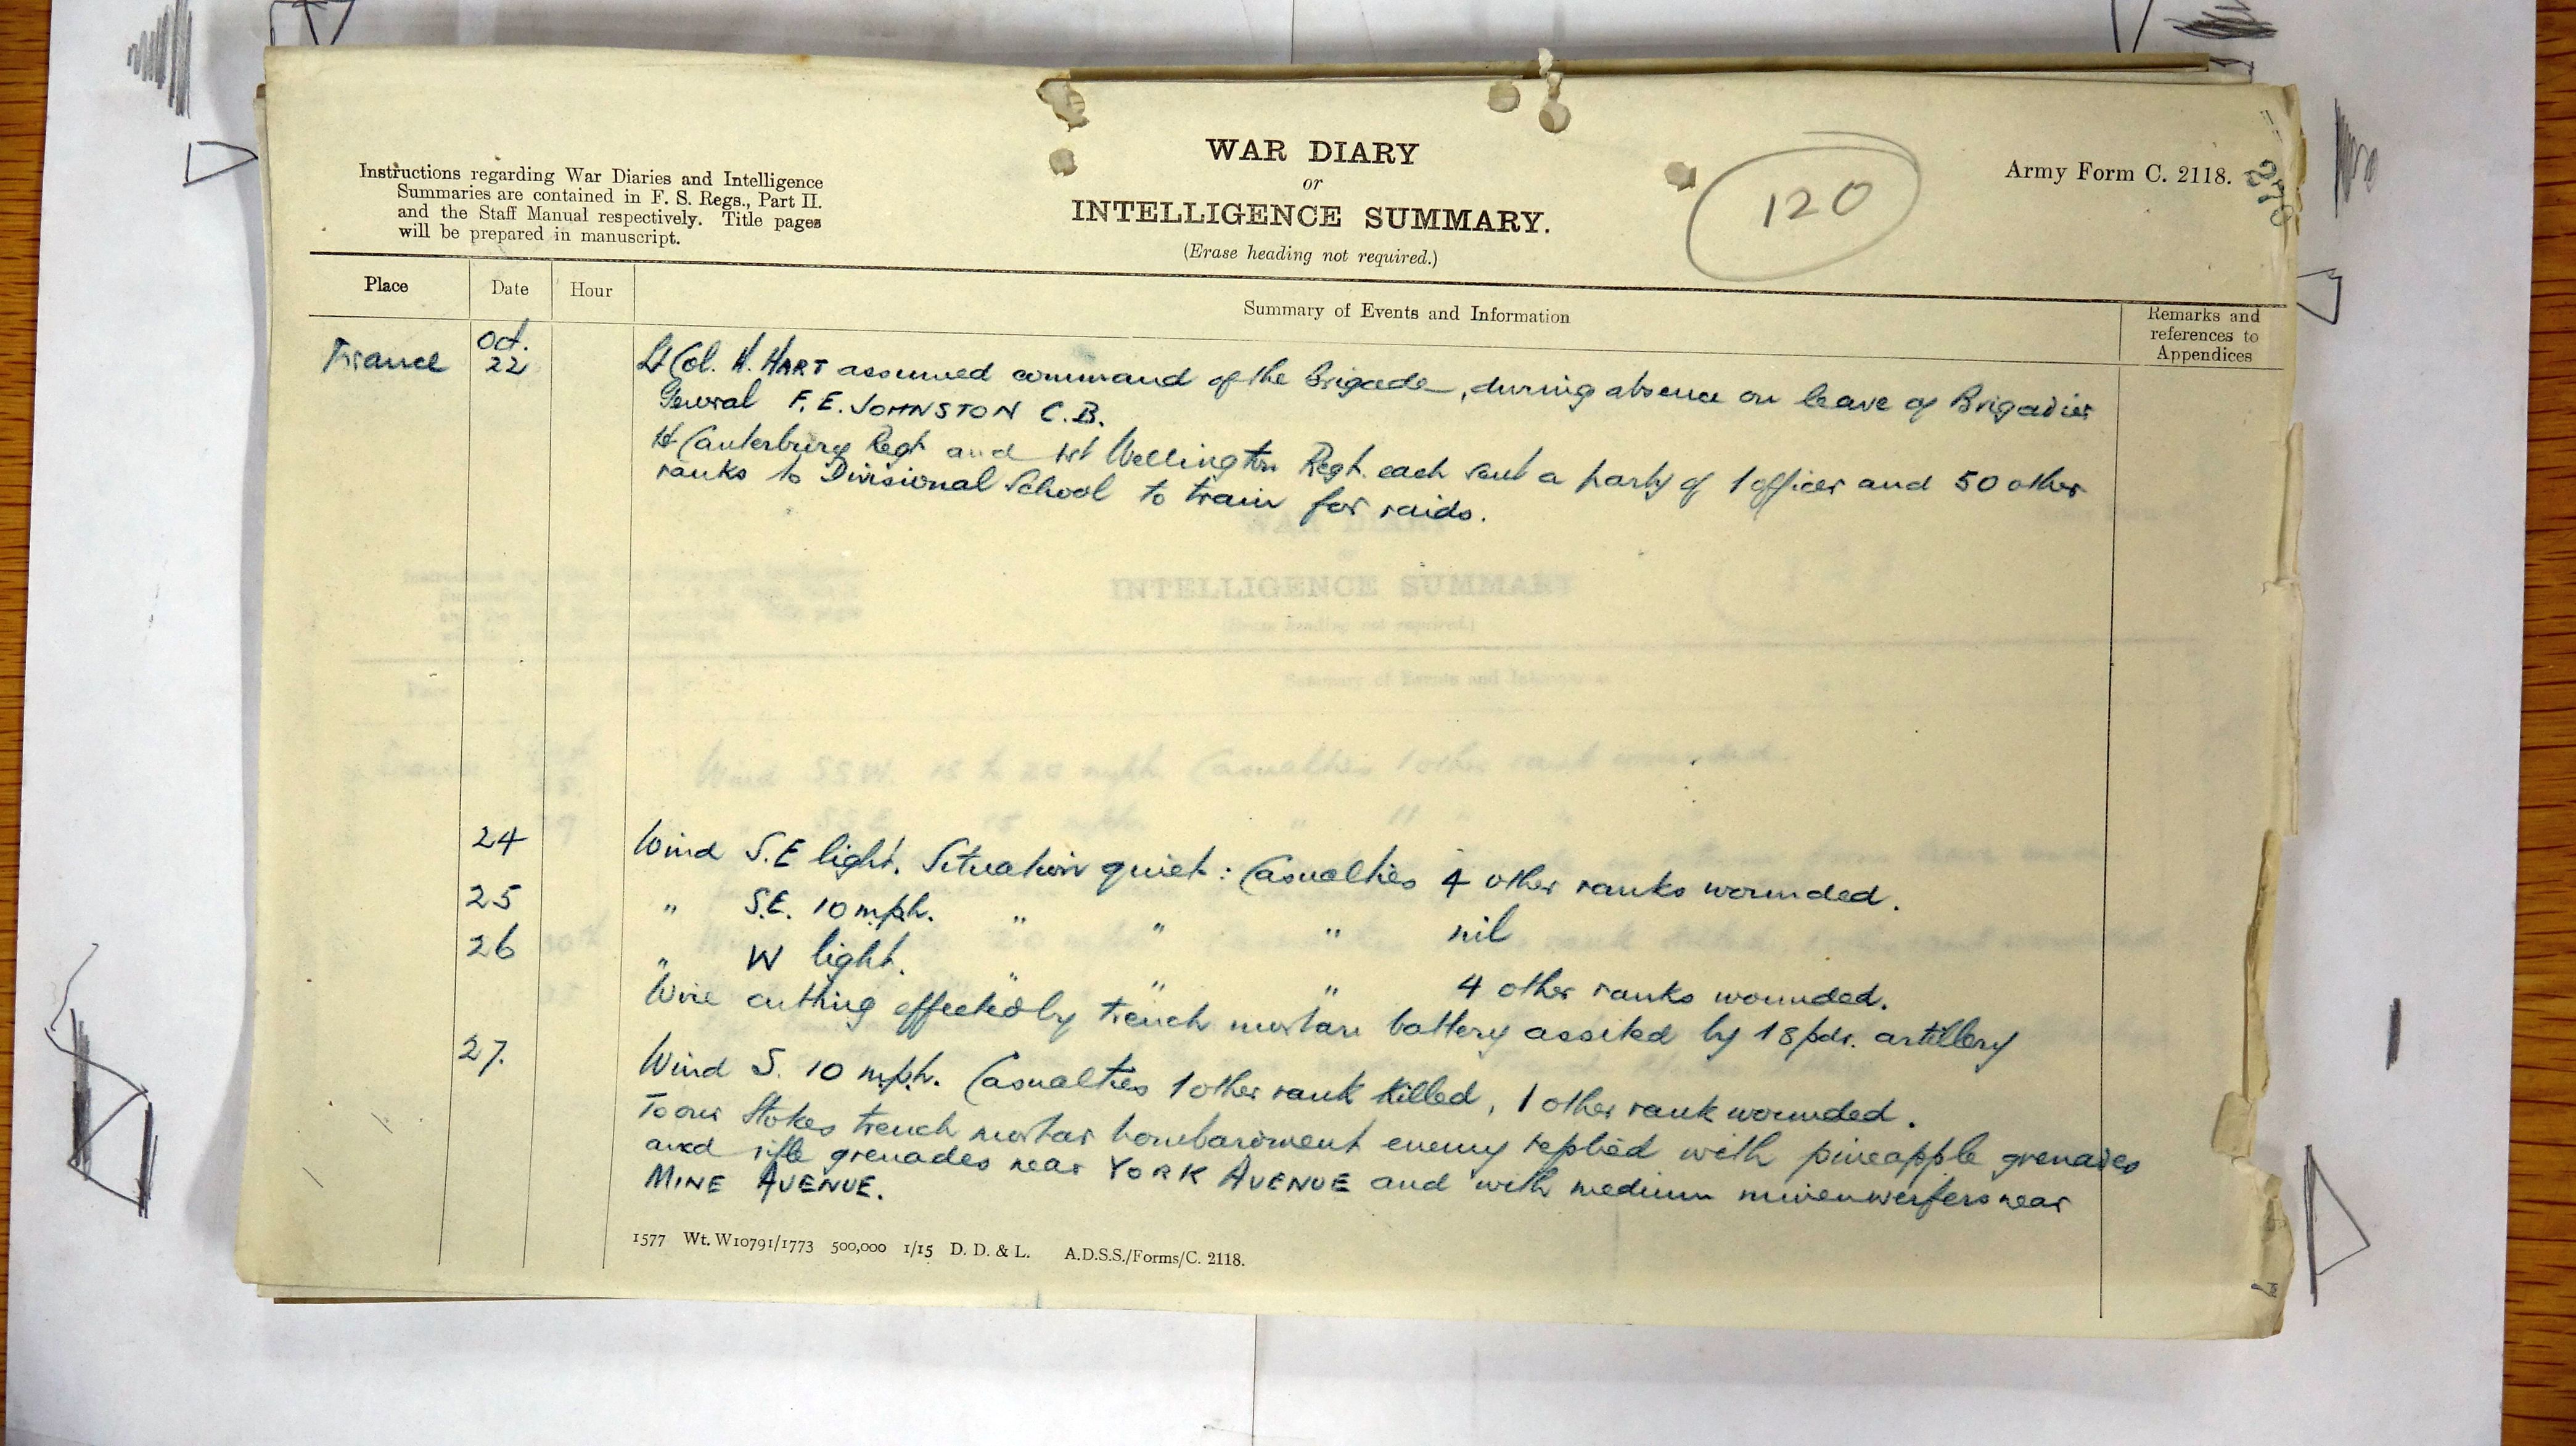 Instructions regarding War Diaries and Intelligence
Summaries are contained in F. S. Regs., Part II.
and the Staff Manual respectively. Title pages
will be prepared in manuscript.
WAR DIARY
or
INTELLIGENCE SUMMARY.
(Erase heading not required.)
120
Army Form C. 2118.
Place Date Hour Summary of Events and Information
Remarks and
references to
Appendices
France Oct. 22 Lt Col. H. HART assumed command of the Brigade, during absence on leave of Brigadier
General F. E. JOHNSTON C.B.
1st Canterbury Regt and 1st Wellington Regt. each sent a party of 1 officer and 50 other
ranks to Divisional School to train for raids.
24 Wind S.E light. Situation quiet: Casualties 4 other ranks wounded.
25 " S.E. 10 mph. " " " nil
26 " W light. " " " 4 other ranks wounded.
Wire cutting effected by trench mortar battery assited by 18 pdr. artillery
27. Wind S. 10 mph. Casualties 1 other rank killed, 1 other rank wounded.
To our Stokes trench mortar bombardment enemy replied with pineapple grenades
and rifle grenades near YORK AVENUE and with medium minenwerfers near
MINE AVENUE.
1577 Wt. W10791/1773 500,000 1/15 D. D. & L. A.D.S.S./Forms/C. 2118.